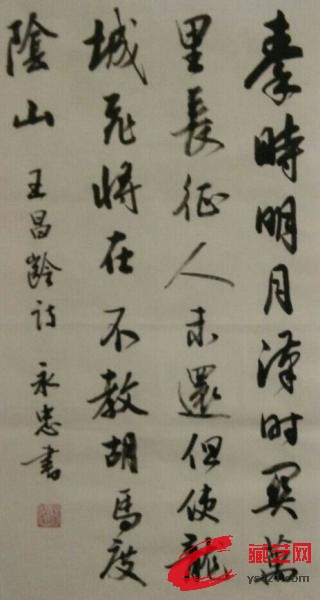 秦時明月漢时関萬
里長征人未還但使龍
城飛將在不教胡馬度
陰山 王昌齡诗 永忠書
藏艺网